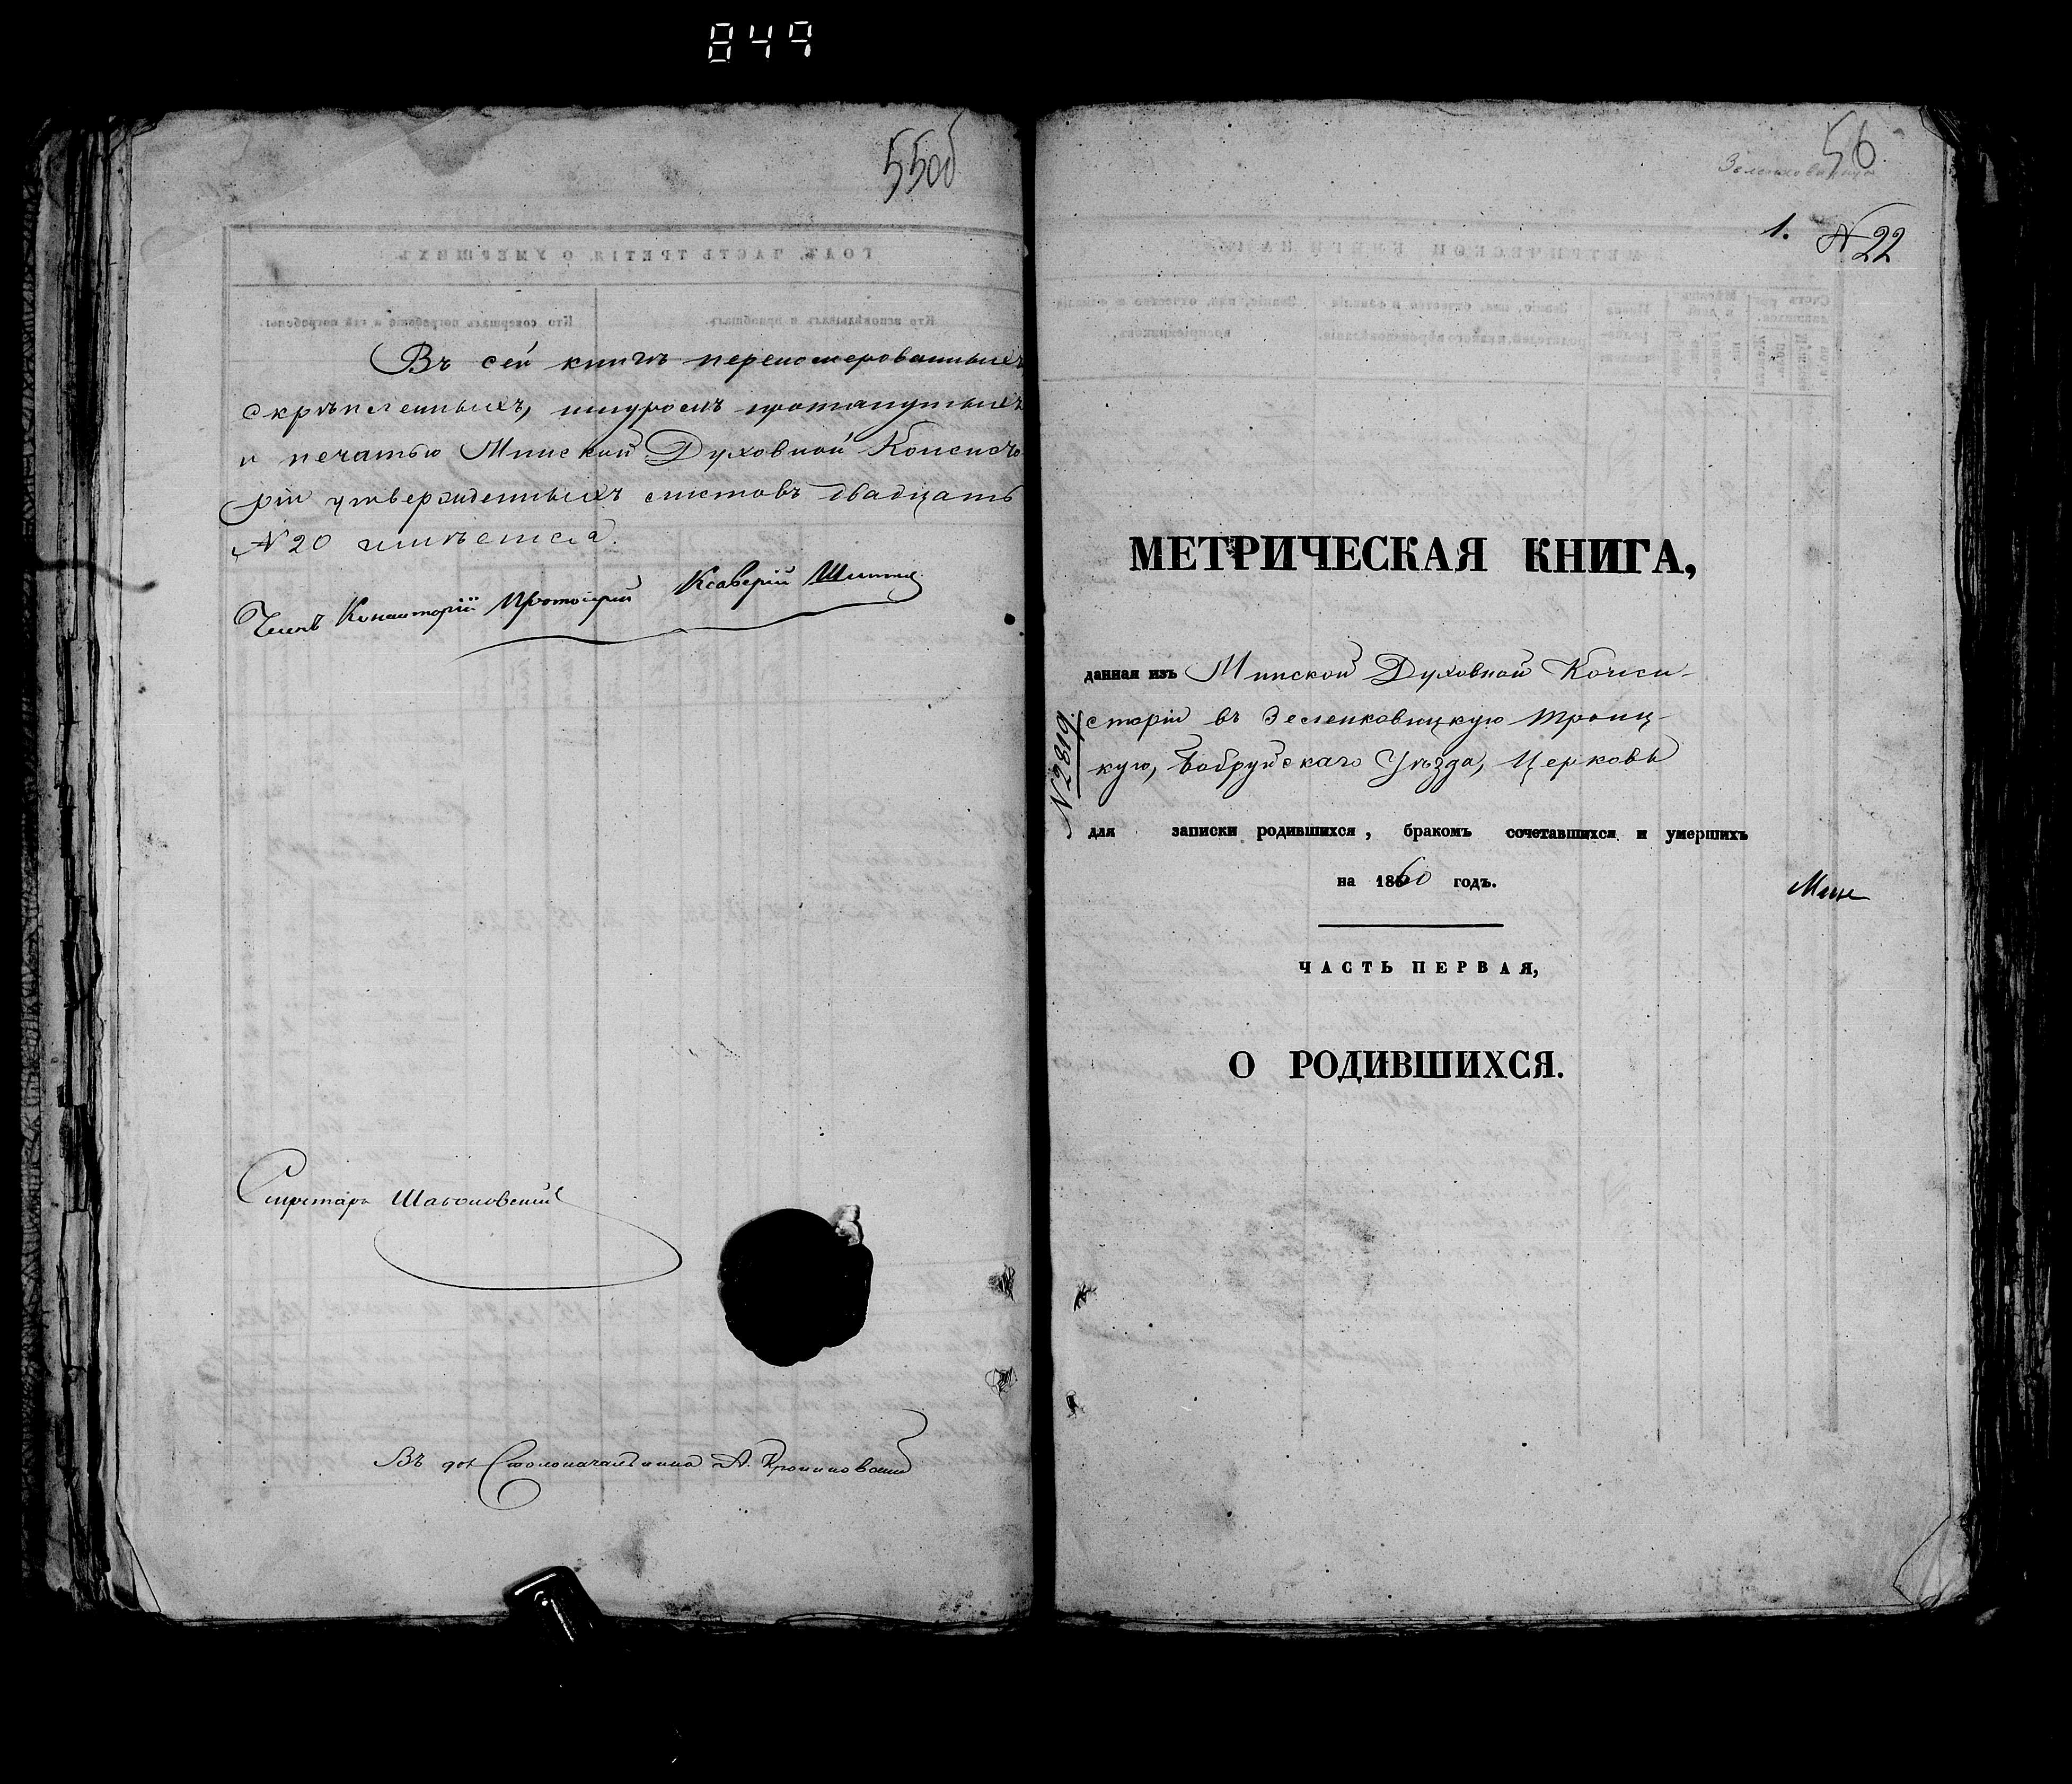 849
55об
Въ сей книгѣ перенумерованныхъ
скрѣпленныхъ, шнуромъ протянутыхъ
и печатью Минской Духовной Консисто
ріи утвержденныхъ листовъ двадцать
№ 20 имѣется.
Членъ Консисторіи Протоіерей Ксаверій
Секретарь
Въ дол Столоначальника А.
56
Зеленковичи
1. № 22
МЕТРИЧЕСКАЯ КНИГА,
данная изъ Минской Духовной Конси-
сторіи въ Зеленковицкую Троиц-
кую, Бобруйскаго Уѣзда, Церковь
№ 2819.
для записки родившихся, бракомъ сочетавшихся и умершихъ
на 1860 годъ.
ЧАСТЬ ПЕРВАЯ,
О РОДИВШИХСЯ.